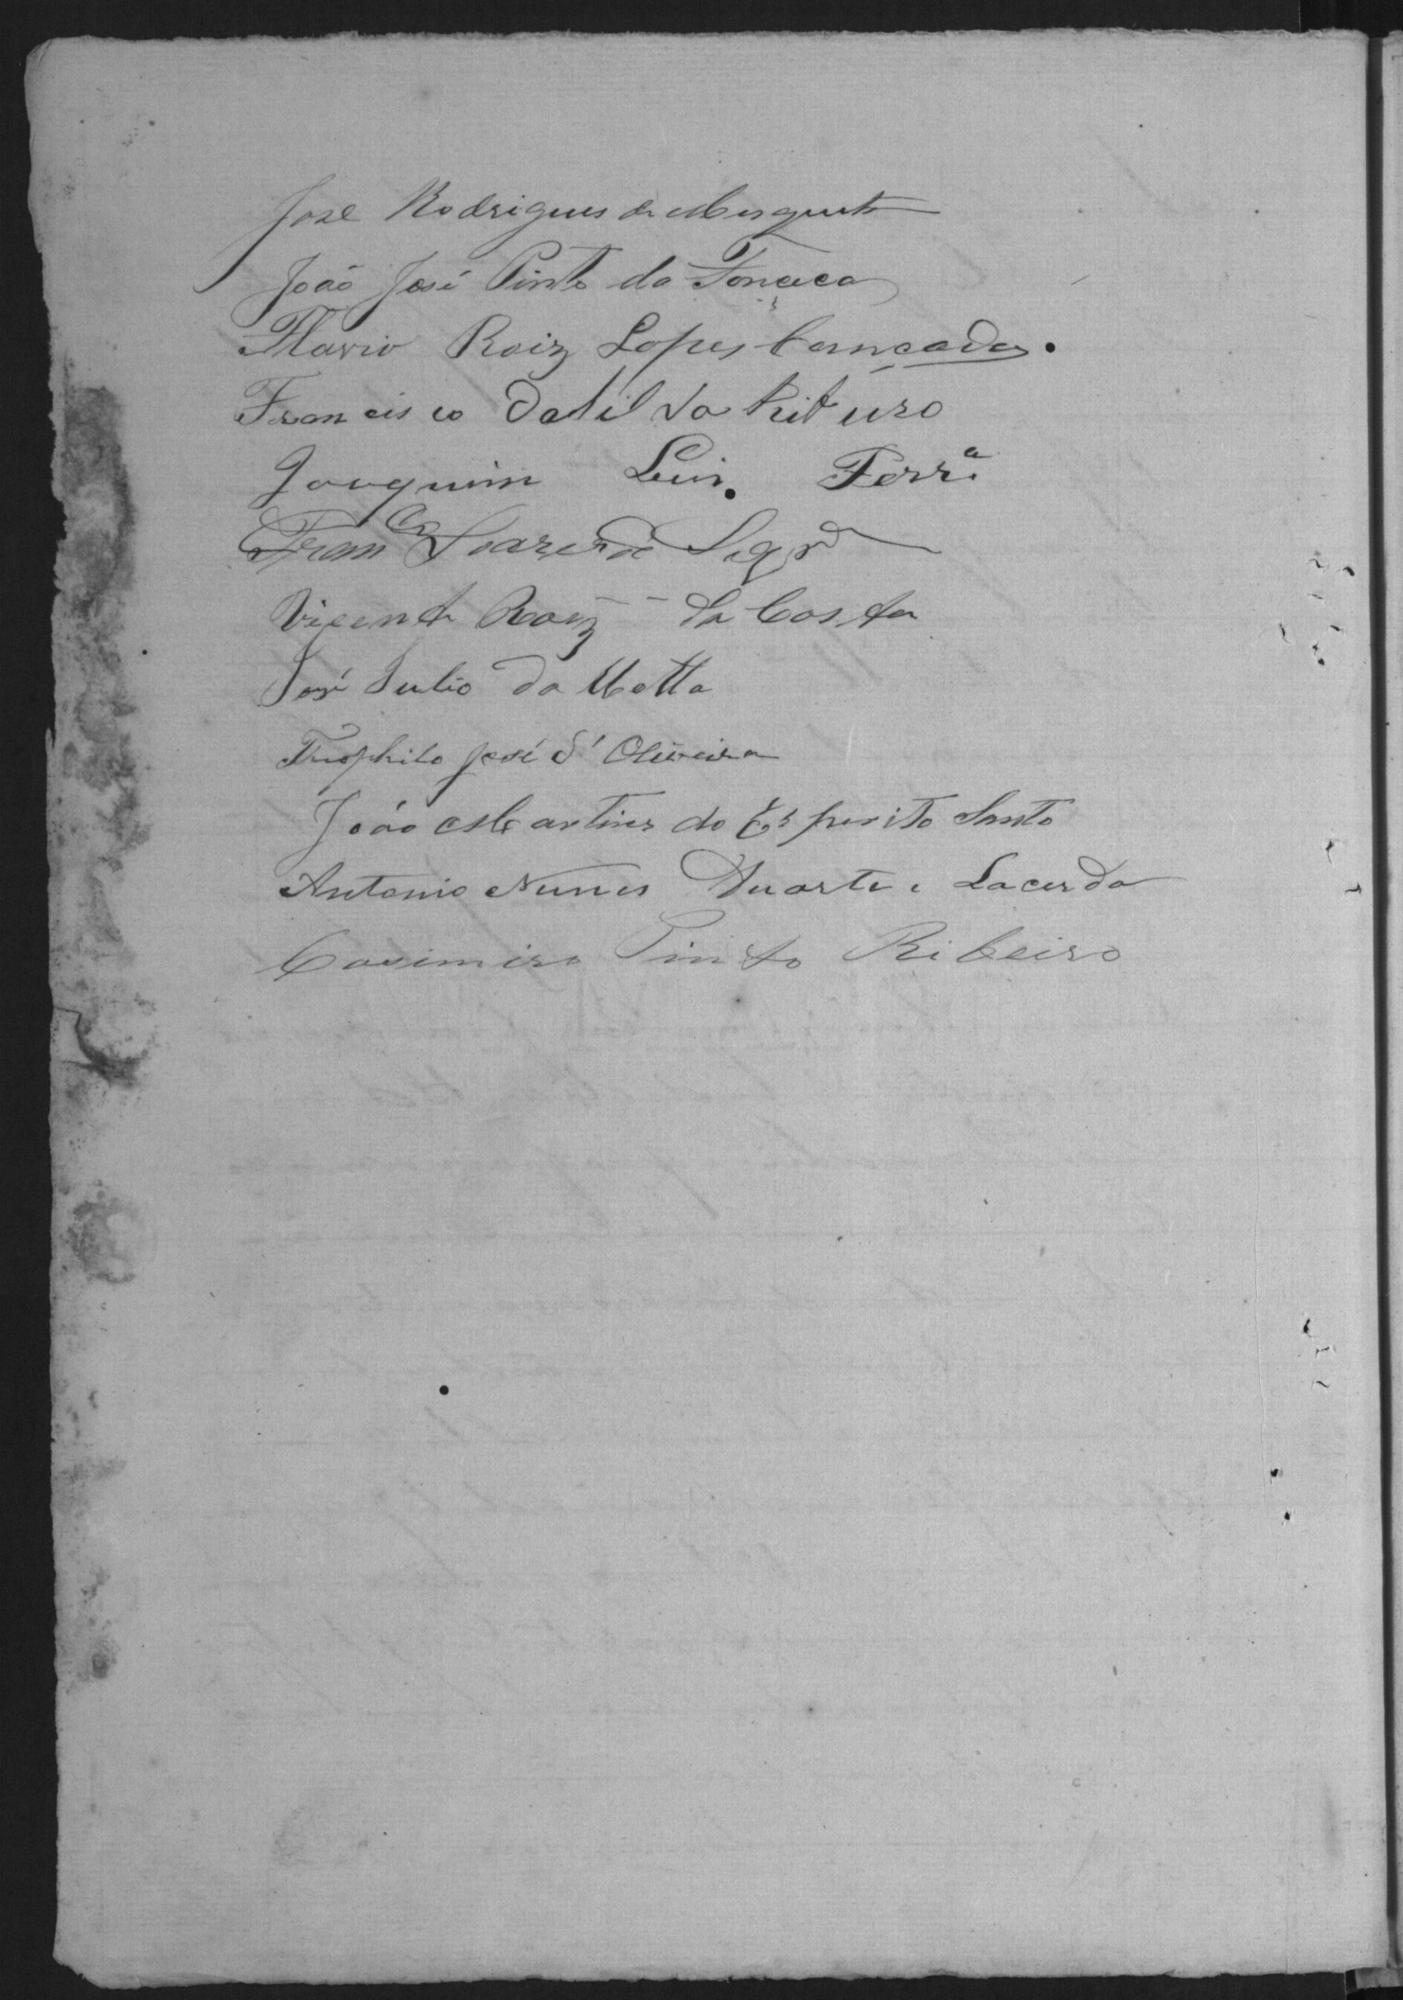 José Rodrigues de Mesquita
João José Pinto da Fonceca
Flavio Roiz Lopes Cançado.
Francisco da Silva Ribeiro
Joaquim Luis Ferrª
Franco Soares de
Vicente Roiz da Costa
José Julio da Motta
Theophilo José d'Oliveira
João Martins do Esperito Santo
Antonio Nunes Duarte e Lacerda
Casimiro Pinto Ribeiro